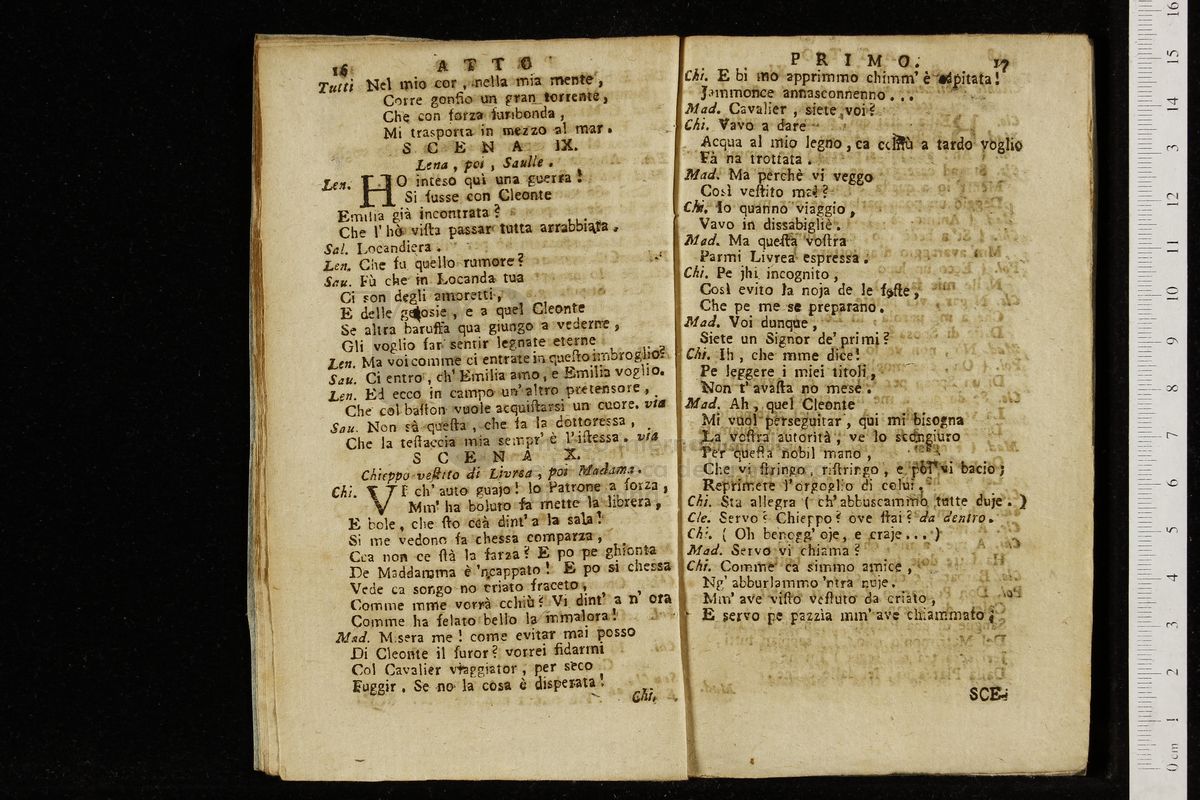 16 ATTO
Tutti Nel mio cor, nella mia mente,
Corre gonfio un gran torrente,
Che con forza furibonda,
Mi trasporta in mezzo al mar.
SCENA IX.
Lena, poi, Saulle.
Len. HO inteso quì una guerra!
Si fusse con Cleonte
Emilia già incontrata?
Che l'hò vista passar tutta arrabbiata.
Sal. Locandiera.
Len. Che fu quello rumore?
Sau. Fù che in Locanda tua
Ci son degli amoretti,
E delle gelosie, e a quel Cleonte
Se altra baruffa qua giungo a vederne,
Gli voglio far sentir legnate eterne
Len. Ma voi comme ci entrate in questo imbroglio?
Sau. Ci entro, ch'Emilia amo, e Emilia voglio.
Len. Ed ecco in campo un'altro pretensore,
Che col baston vuole acquistarsi un cuore. via
Sau. Non sà questa, che fa la dottoressa,
Che la testaccia mia sempr'è l'istessa. via
SCENA X.
Chieppo vestito di Livrea, poi Madama.
Chi. VI ch'auto guajo! lo Patrone a forza,
Mm'ha boluto fa mette la librera,
E bole, che sto ccà dint'a la sala!
Si me vedono fa chessa comparza,
Cca non ce stà la farza? E po pe ghionta
De Maddamma è 'ncappato! E po si chessa
Vede ca songo no criato fraceto,
Comme mme vorrà cchiù? Vi dint'a n'ora
Comme ha felato bello la mmalora!
Mad. Misera me! come evitar mai posso
Di Cleonte il furor? vorrei fidarmi
Col Cavalier viaggiator, per seco
Fuggir. Se no la cosa è disperata!
Chi.
PRIMO. 17
Chi. E bi mo apprimmo chimm'è capitata!
Jammonce annasconnenno...
Mad. Cavalier, siete voi?
Chi. Vavo a dare
Acqua al mio legno, ca cchiù a tardo voglio
Fà na trottata.
Mad. Ma perchè vi veggo
Così vestito mai?
Chi. Io quanno viaggio,
Vavo in dissabigliè.
Mad. Ma questa vostra
Parmi Livrea espressa.
Chi. Pe jhi incognito,
Così evito la noja de le feste,
Che pe me se preparano.
Mad. Voi dunque,
Siete un Signor de'primi?
Chi. Ih, che mme dice!
Pe leggere i miei titoli,
Non t'avasta no mese.
Mad. Ah, quel Cleonte
Mi vuol perseguitar, qui mi bisogna
La vostra autorità, ve lo scongiuro
Per questa nobil mano,
Che vi stringo, ristringo, e poi vi bacio;
Reprimete l'orgoglio di colui.
Chi. Sta allegra (ch'abbuscammo tutte duje.)
Cle. Servo? Chieppo? ove stai? da dentro.
Chi. (Oh benegg'oje, e craje...)
Mad. Servo vi chiama?
Chi. Comme ca simmo amice,
Ng'abburlammo 'ntra nuje.
Mm'ave visto vestuto da criato,
E servo pe pazzia mm'ave chiammato;
SCE-